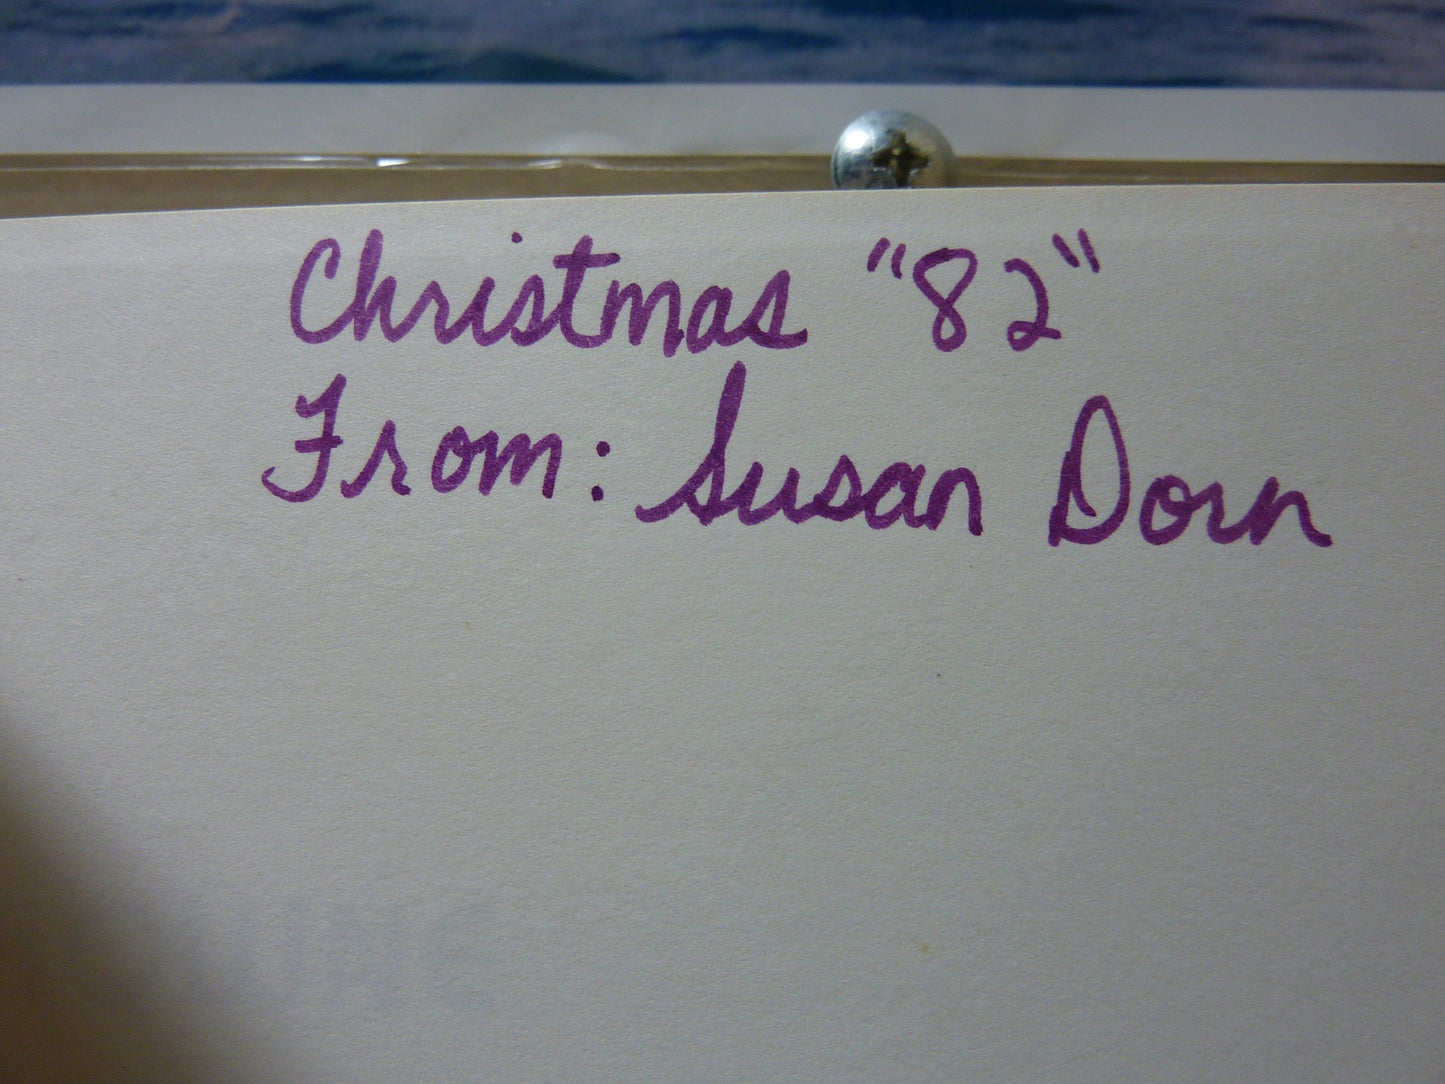 Christmas "82"
From: Susan Dorn